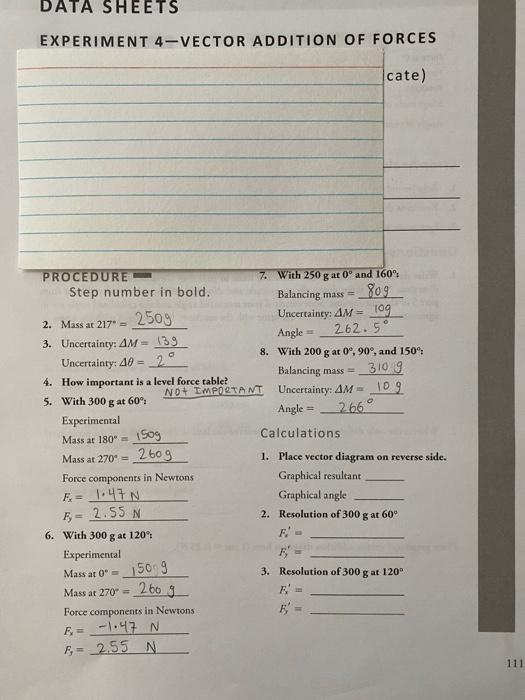 DATA SHEETS
EXPERIMENT 4—VECTOR ADDITION OF FORCES
cate)
PROCEDURE
Step number in bold.
2. Mass at 217° = 250g
3. Uncertainty: ΔM = 13g
Uncertainty: Δθ = 2°
4. How important is a level force table?
NOt IMPORTANT
5. With 300 g at 60°:
Experimental
Mass at 180° = 150g
Mass at 270° = 260g
Force components in Newtons
Fx = 1.47 N
Fy = 2.55 N
6. With 300 g at 120°:
Experimental
Mass at 0° = 150 g
Mass at 270° = 260 g
Force components in Newtons
Fx = -1.47 N
Fy = 2.55 N
7. With 250 g at 0° and 160°:
Balancing mass = 80g
Uncertainty: ΔM = 10g
Angle = 262.5°
8. With 200 g at 0°, 90°, and 150°:
Balancing mass = 310 g
Uncertainty: ΔM = 10 g
Angle = 266°
Calculations
1. Place vector diagram on reverse side.
Graphical resultant
Graphical angle
2. Resolution of 300 g at 60°
Fx' =
Fy' =
3. Resolution of 300 g at 120°
Fx' =
Fy' =
111